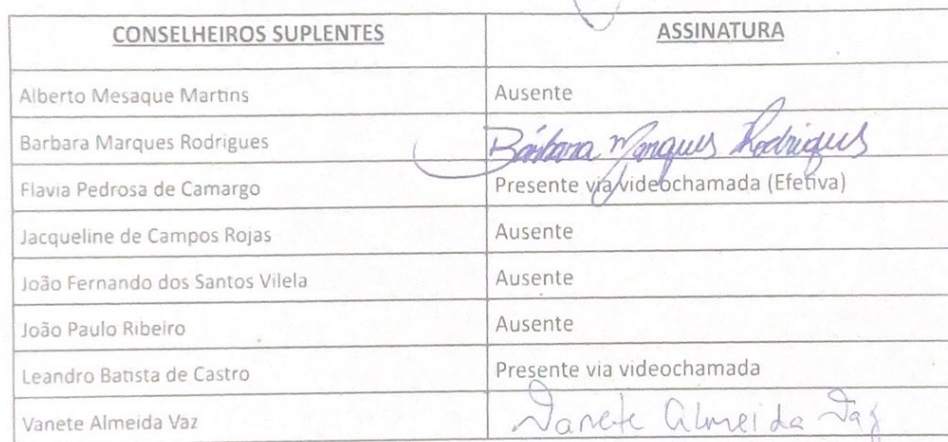 CONSELHEIROS SUPLENTES ASSINATURA
Alberto Mesaque Martins Ausente
Barbara Marques Rodrigues Bárbara Marques Rodrigues
Flavia Pedrosa de Camargo Presente via videochamada (Efetiva)
Jacqueline de Campos Rojas Ausente
João Fernando dos Santos Vilela Ausente
João Paulo Ribeiro Ausente
Leandro Batista de Castro Presente via videochamada
Vanete Almeida Vaz Vanete Almeida Vaz